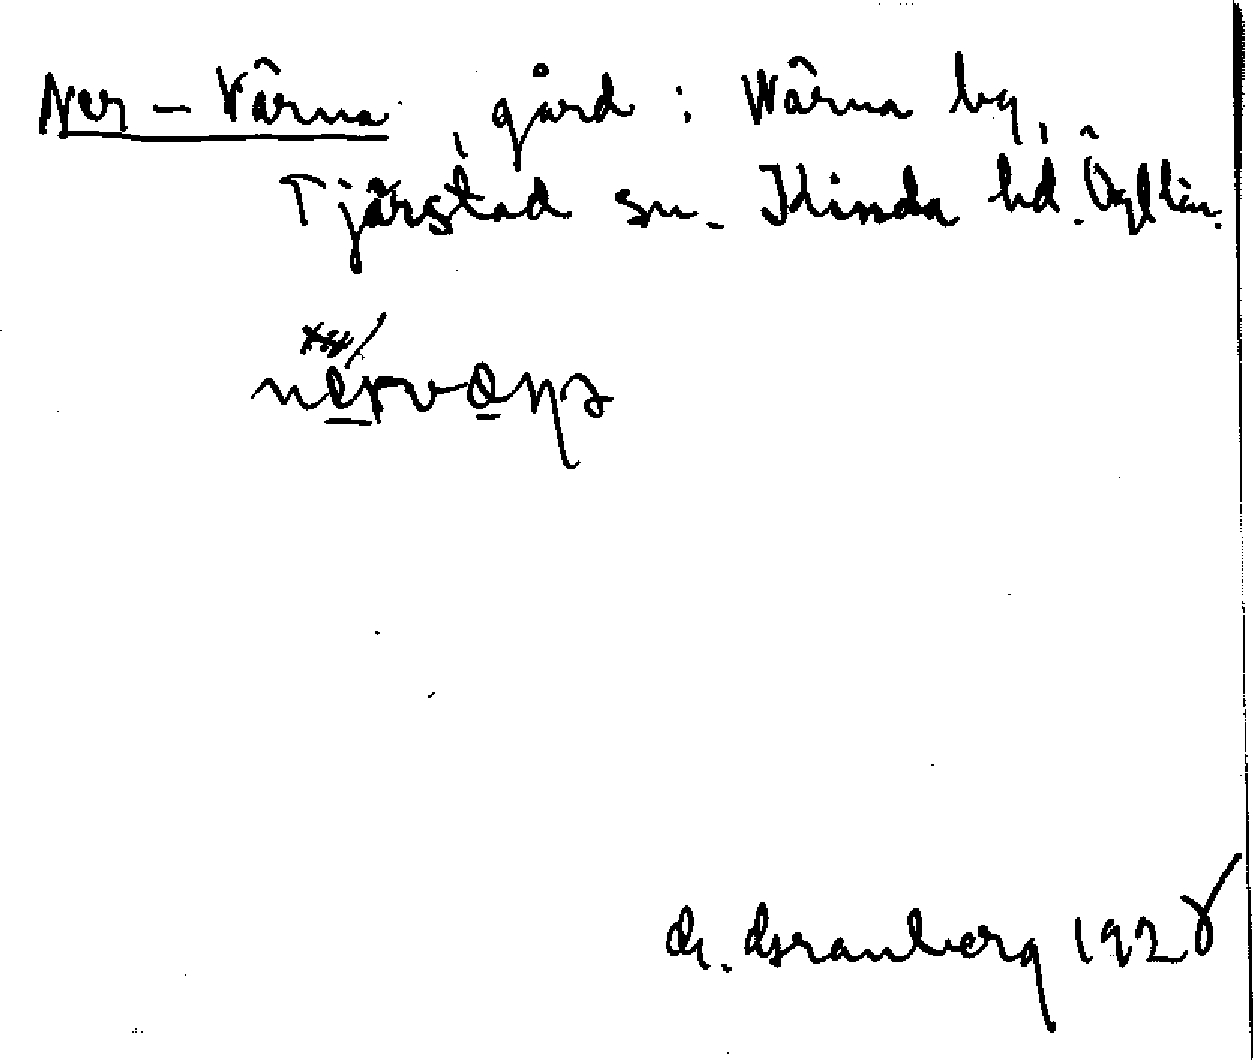 Ner-Värna, gård i Wärna by,
Tjärstad sn. Kinda hd. Ögl län.
G. Granberg 1928